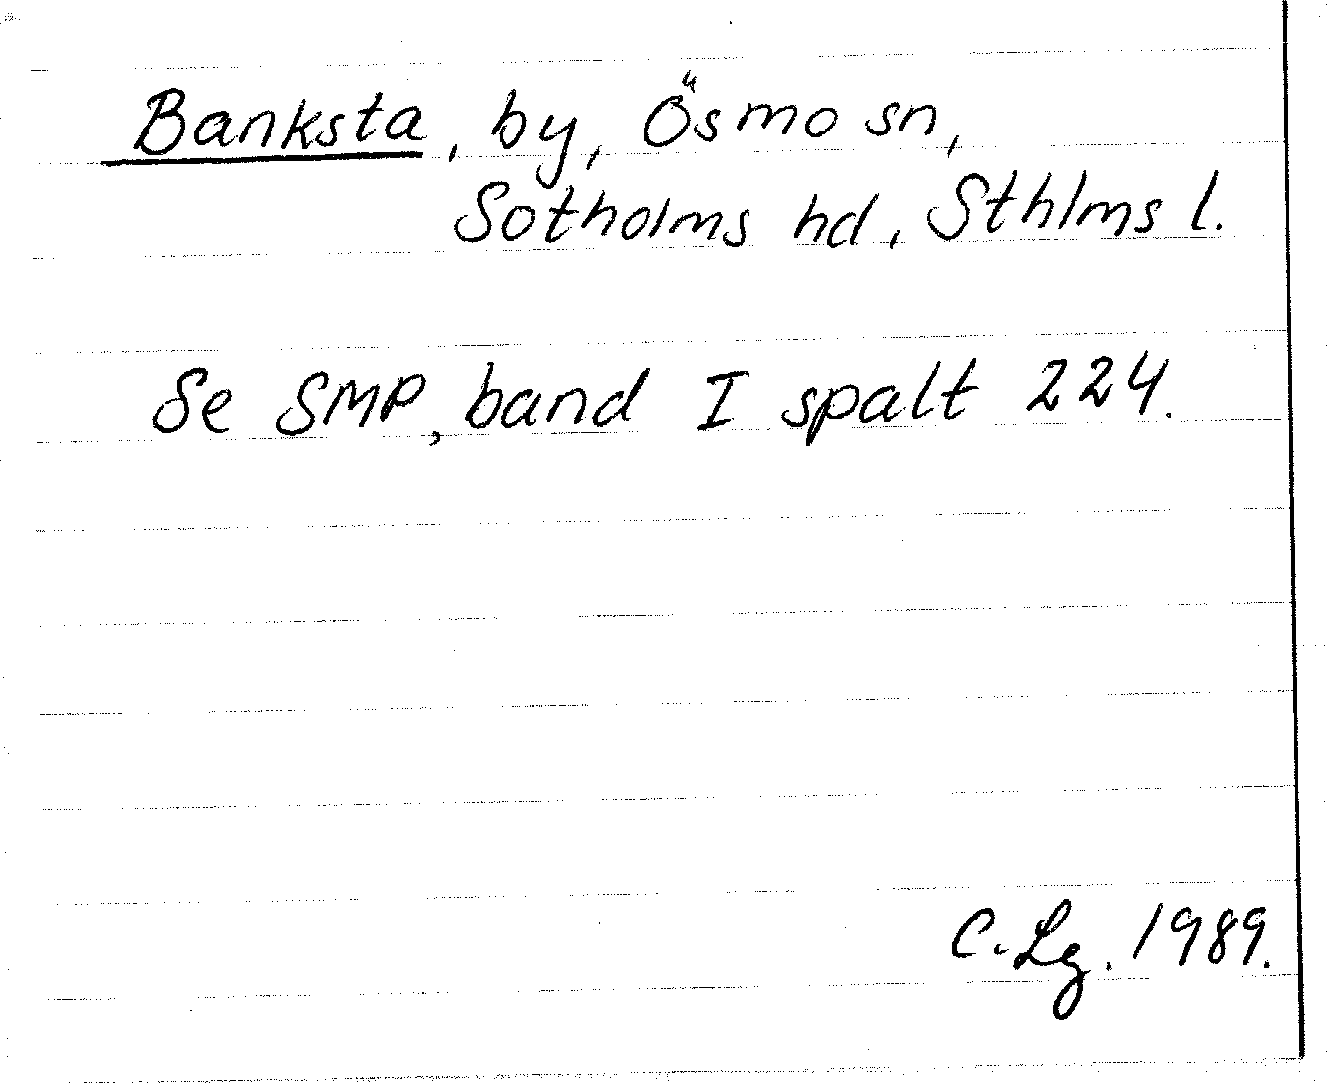 Banksta, by, Ösmo sn,
Sotholms hd, Sthlms l.
Se SMP, band I spalt 224.
C. Lg. 1989.